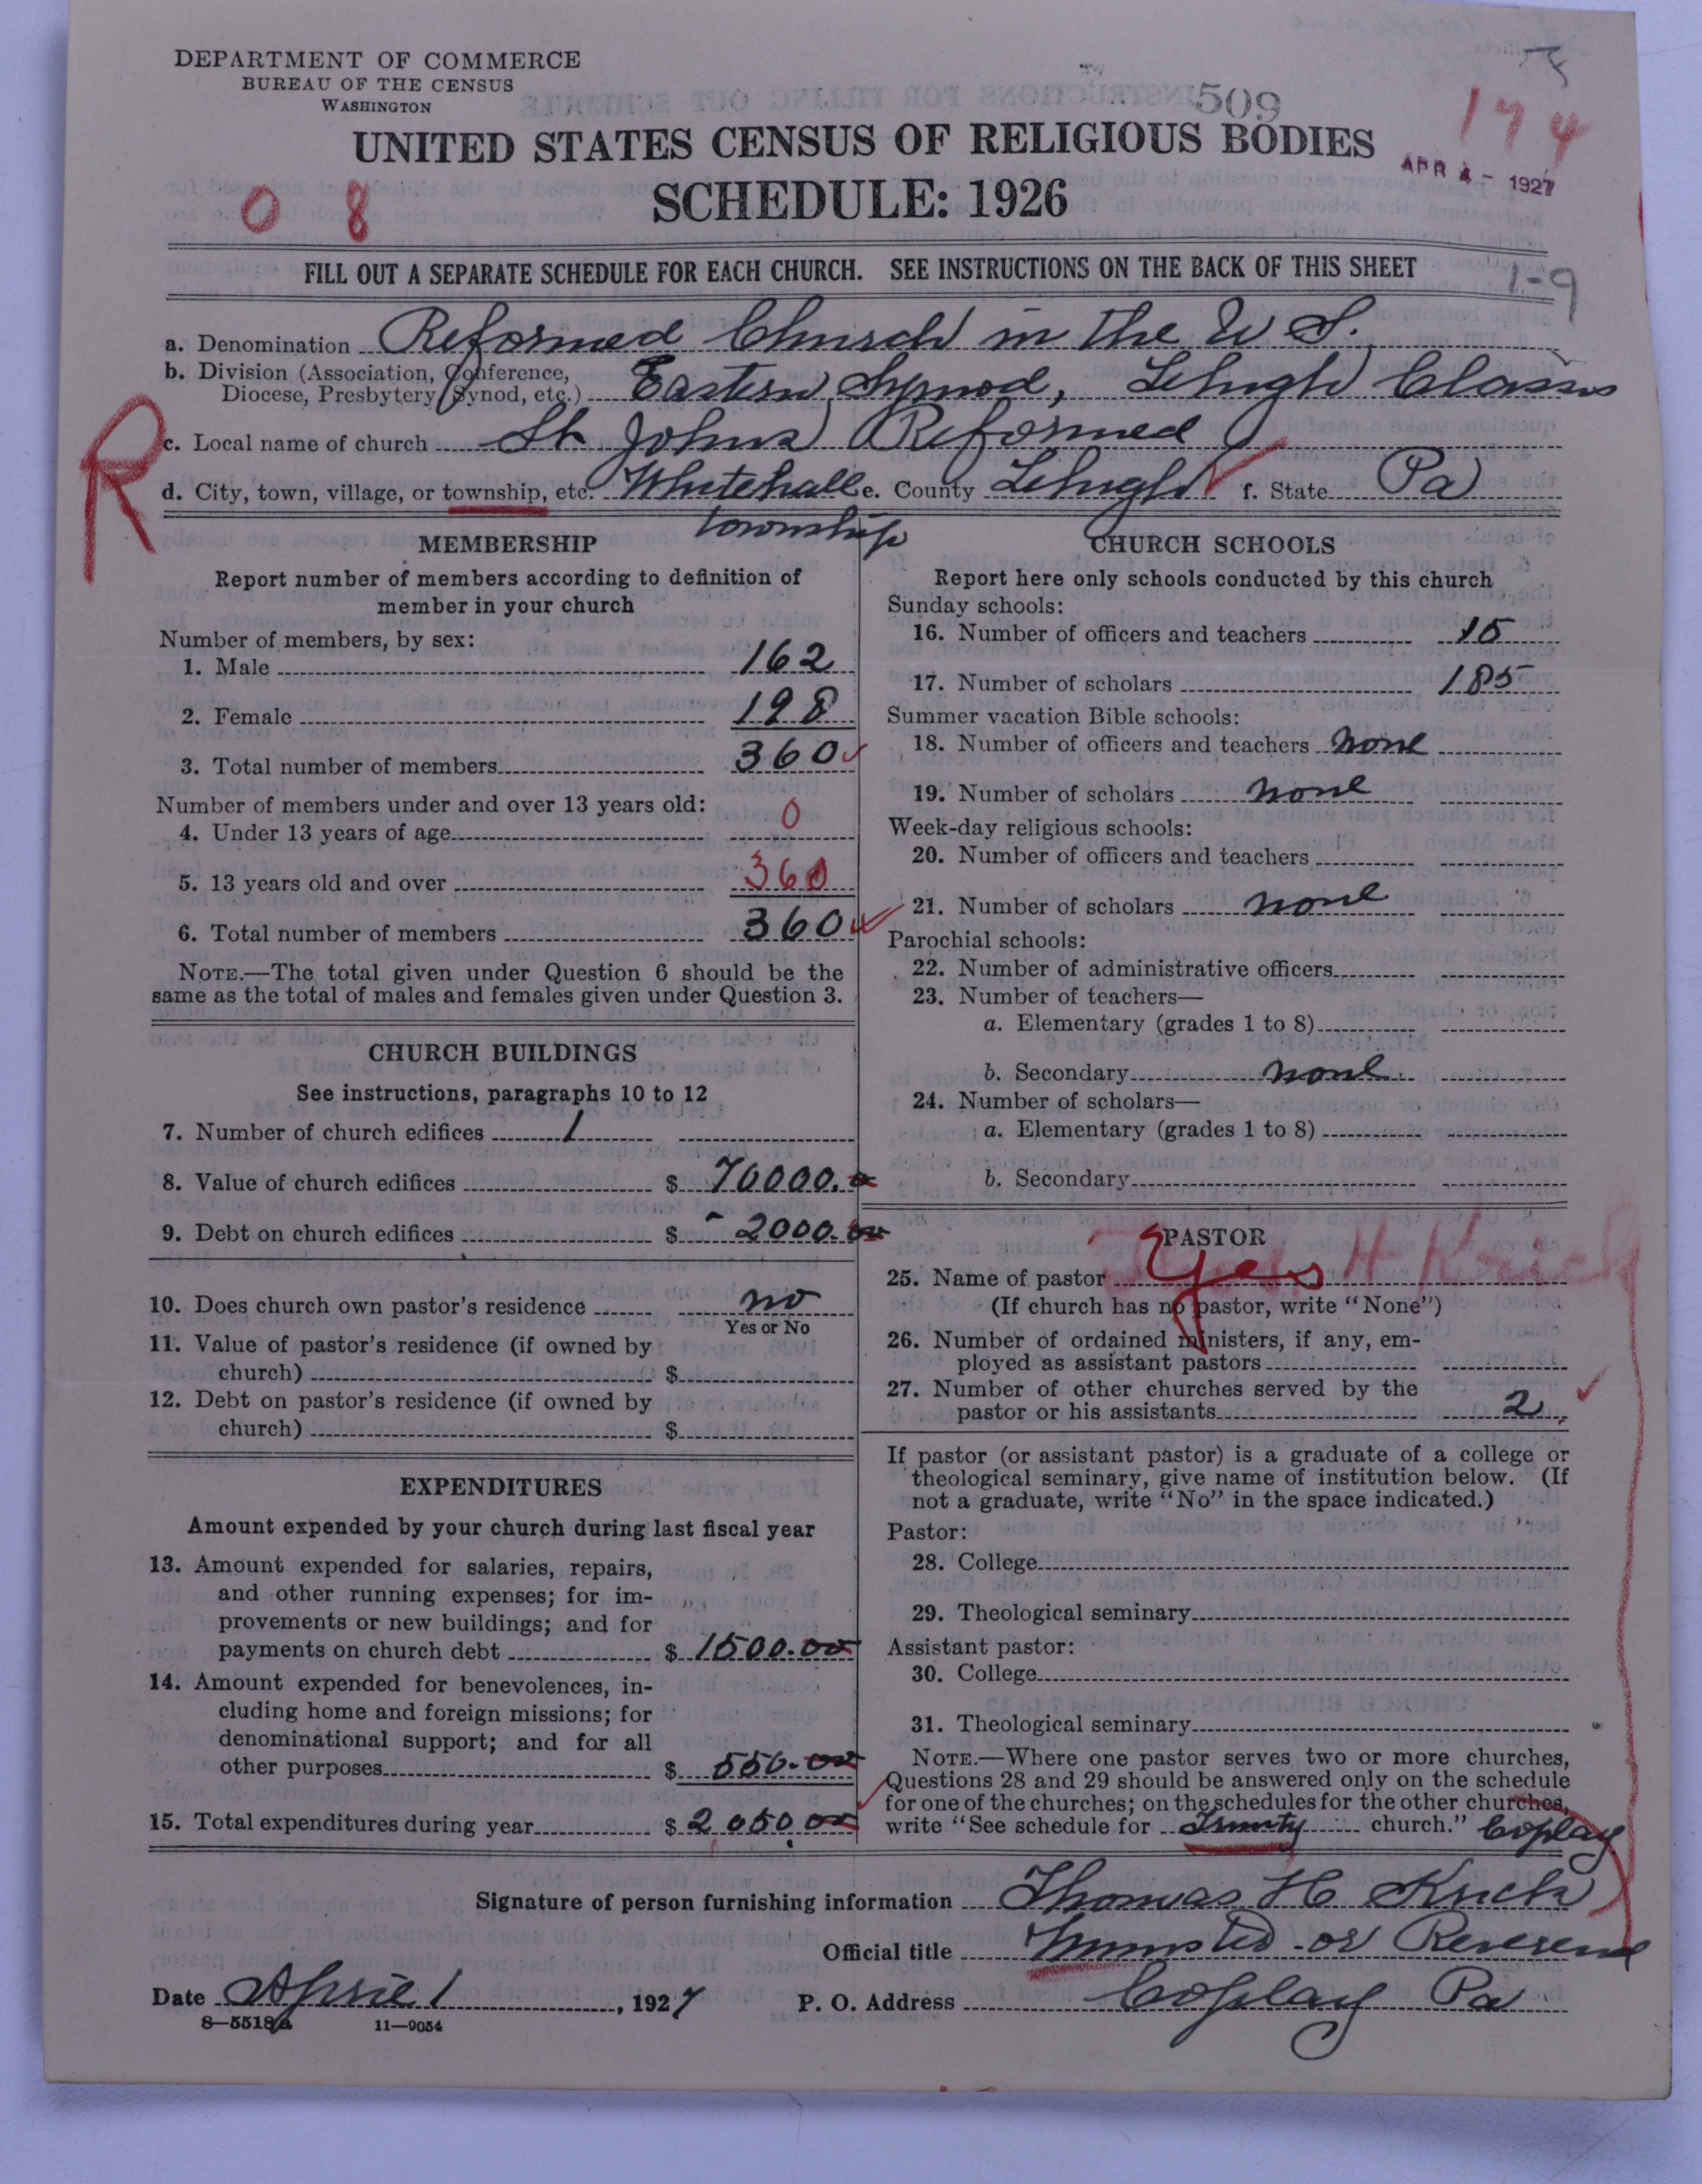 DEPARTMENT OF COMMERCE
BUREAU OF THE CENSUS
WASHINGTON
509
174
UNITED STATES CENSUS OF RELIGIOUS BODIES
APR 4 - 1927
0 8
SCHEDULE: 1926
FILL OUT A SEPARATE SCHEDULE FOR EACH CHURCH. SEE INSTRUCTIONS ON THE BACK OF THIS SHEET
1-9
a. Denomination Reformed Church in the U S.
b. Division (Association, Conference, Diocese, Presbytery, Synod, etc.) Eastern Synod, Lehigh Classis
R
c. Local name of church St Johns Reformed
d. City, town, village, or township, etc. Whitehall township e. County Lehigh f. State Pa
MEMBERSHIP
Report number of members according to definition of
member in your church
Number of members, by sex:
1. Male 162
2. Female 198
3. Total number of members 360
Number of members under and over 13 years old:
4. Under 13 years of age 0
5. 13 years old and over 360
6. Total number of members 360
NOTE.—The total given under Question 6 should be the
same as the total of males and females given under Question 3.
CHURCH BUILDINGS
See instructions, paragraphs 10 to 12
7. Number of church edifices 1
8. Value of church edifices $ 70000.00
9. Debt on church edifices $ 2000.00
10. Does church own pastor's residence no
Yes or No
11. Value of pastor's residence (if owned by
church) $
12. Debt on pastor's residence (if owned by
church) $
EXPENDITURES
Amount expended by your church during last fiscal year
13. Amount expended for salaries, repairs,
and other running expenses; for im-
provements or new buildings; and for
payments on church debt $ 1500.00
14. Amount expended for benevolences, in-
cluding home and foreign missions; for
denominational support; and for all
other purposes $ 550.00
15. Total expenditures during year $ 2050.00
CHURCH SCHOOLS
Report here only schools conducted by this church
Sunday schools:
16. Number of officers and teachers 15
17. Number of scholars 185
Summer vacation Bible schools:
18. Number of officers and teachers none
19. Number of scholars none
Week-day religious schools:
20. Number of officers and teachers
21. Number of scholars none
Parochial schools:
22. Number of administrative officers
23. Number of teachers—
a. Elementary (grades 1 to 8)
b. Secondary none
24. Number of scholars—
a. Elementary (grades 1 to 8)
b. Secondary
PASTOR
25. Name of pastor H Krick
(If church has no pastor, write "None")
26. Number of ordained ministers, if any, em-
ployed as assistant pastors
27. Number of other churches served by the
pastor or his assistants 2
If pastor (or assistant pastor) is a graduate of a college or
theological seminary, give name of institution below. (If
not a graduate, write "No" in the space indicated.)
Pastor:
28. College
29. Theological seminary
Assistant pastor:
30. College
31. Theological seminary
NOTE.—Where one pastor serves two or more churches,
Questions 28 and 29 should be answered only on the schedule
for one of the churches; on the schedules for the other churches,
write "See schedule for Trinity church." Coplay
Signature of person furnishing information Thomas H Krick
Official title Minister or Reverend
Date April 1, 1927 P. O. Address Coplay Pa
8—5518a 11—9054